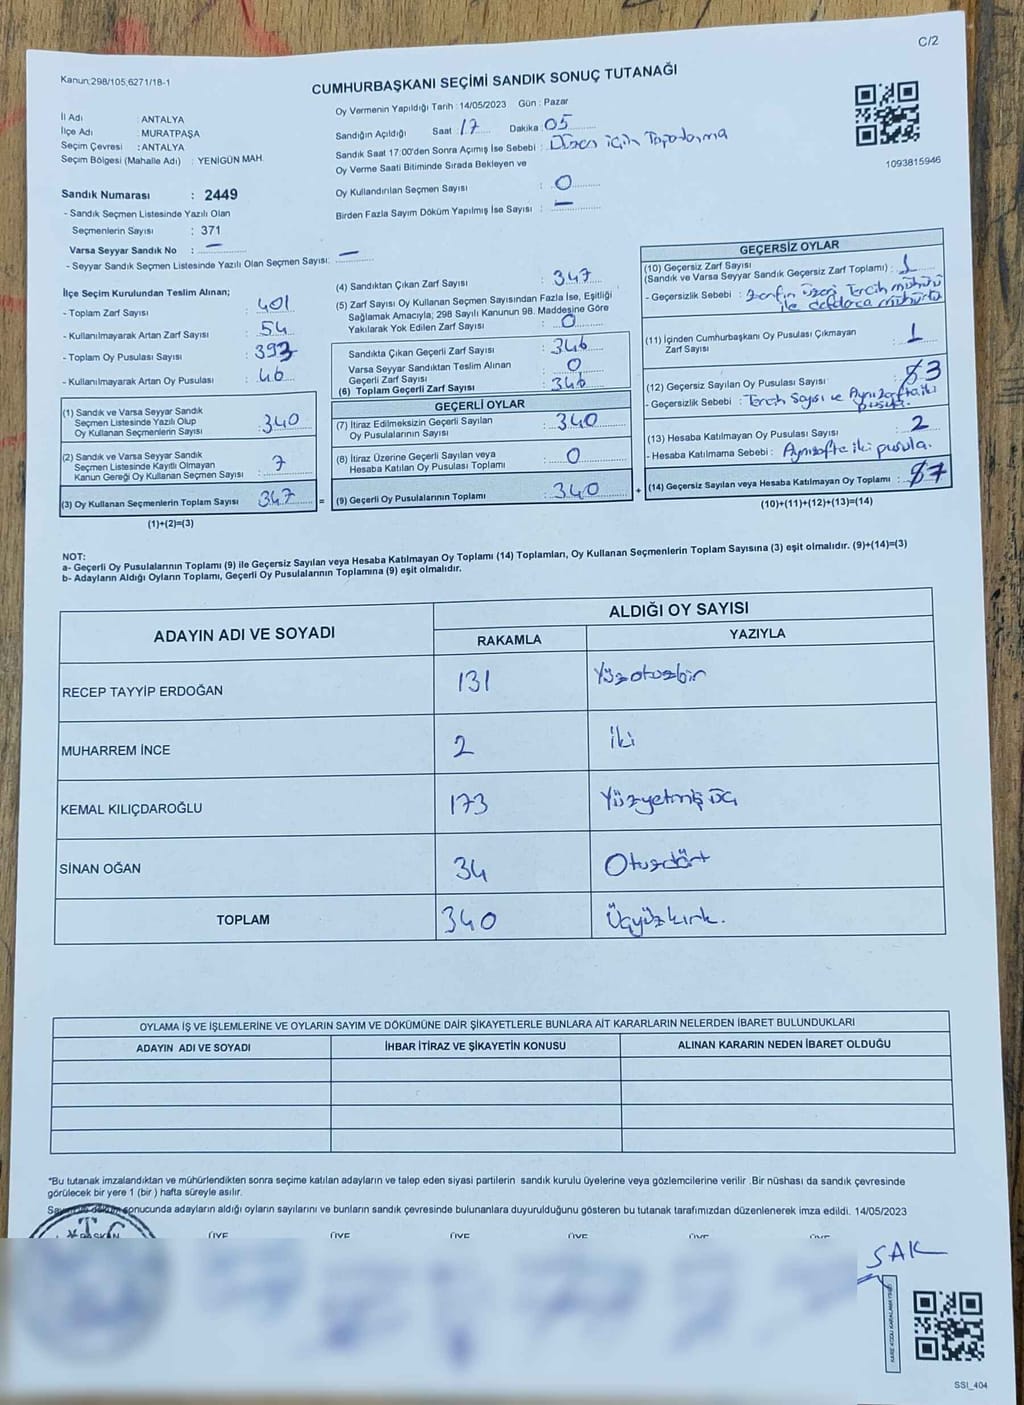 C/2
Kanun:298/105,6271/18-1
CUMHURBAŞKANI SEÇİMİ SANDIK SONUÇ TUTANAĞI
İl Adı ANTALYA
İlçe Adı : MURATPAŞA
Seçim Çevresi : ANTALYA
Seçim Bölgesi (Mahalle Adı) : YENİGÜN MAH.
Oy Vermenin Yapıldığı Tarih : 14/05/2023 Gün : Pazar
Sandığın Açıldığı Saat : 17 Dakika : 05
Sandık Saat 17:00'den Sonra Açımış İse Sebebi : Düzen için Toparlanma
Oy Verme Saati Bitiminde Sırada Bekleyen ve
Oy Kullandırılan Seçmen Sayısı : 0
Birden Fazla Sayım Döküm Yapılmış İse Sayısı : —
1093815946
Sandık Numarası : 2449
- Sandık Seçmen Listesinde Yazılı Olan
Seçmenlerin Sayısı : 371
Varsa Seyyar Sandık No : —
- Seyyar Sandık Seçmen Listesinde Yazılı Olan Seçmen Sayısı: —
İlçe Seçim Kurulundan Teslim Alınan;
- Toplam Zarf Sayısı : 401
- Kullanılmayarak Artan Zarf Sayısı : 54
- Toplam Oy Pusulası Sayısı : 393
- Kullanılmayarak Artan Oy Pusulası : 46
(1) Sandık ve Varsa Seyyar Sandık
Seçmen Listesinde Yazılı Olup
Oy Kullanan Seçmenlerin Sayısı : 340
(2) Sandık ve Varsa Seyyar Sandık
Seçmen Listesinde Kayıtlı Olmayan
Kanun Gereği Oy Kullanan Seçmen Sayısı : 7
(3) Oy Kullanan Seçmenlerin Toplam Sayısı 347 =
(1)+(2)=(3)
(4) Sandıktan Çıkan Zarf Sayısı : 347
(5) Zarf Sayısı Oy Kullanan Seçmen Sayısından Fazla İse, Eşitliği
Sağlamak Amacıyla; 298 Sayılı Kanunun 98. Maddesine Göre
Yakılarak Yok Edilen Zarf Sayısı : 0
Sandıkta Çıkan Geçerli Zarf Sayısı : 346
Varsa Seyyar Sandıktan Teslim Alınan
Geçerli Zarf Sayısı : 0
(6) Toplam Geçerli Zarf Sayısı : 346
GEÇERLİ OYLAR
(7) İtiraz Edilmeksizin Geçerli Sayılan
Oy Pusulalarının Sayısı : 340
(8) İtiraz Üzerine Geçerli Sayılan veya
Hesaba Katılan Oy Pusulası Toplamı : 0
(9) Geçerli Oy Pusulalarının Toplamı : 340 +
GEÇERSİZ OYLAR
(10) Geçersiz Zarf Sayısı
(Sandık ve Varsa Seyyar Sandık Geçersiz Zarf Toplamı) : 1
- Geçersizlik Sebebi : Zarfın Üzeri Tercih mühürü
ile mühürlü
(11) İçinden Cumhurbaşkanı Oy Pusulası Çıkmayan
Zarf Sayısı : 1
(12) Geçersiz Sayılan Oy Pusulası Sayısı : 3
- Geçersizlik Sebebi : Tercih Sayısı ve Aynı zarfta iki
pusula.
(13) Hesaba Katılmayan Oy Pusulası Sayısı : 2
- Hesaba Katılmama Sebebi : Aynı zarfta iki pusula.
(14) Geçersiz Sayılan veya Hesaba Katılmayan Oy Toplamı : 7
(10)+(11)+(12)+(13)=(14)
NOT:
a- Geçerli Oy Pusulalarının Toplamı (9) ile Geçersiz Sayılan veya Hesaba Katılmayan Oy Toplamı (14) Toplamları, Oy Kullanan Seçmenlerin Toplam Sayısına (3) eşit olmalıdır. (9)+(14)=(3)
b- Adayların Aldığı Oyların Toplamı, Geçerli Oy Pusulalarının Toplamına (9) eşit olmalıdır.
ADAYIN ADI VE SOYADI ALDIĞI OY SAYISI
RAKAMLA YAZIYLA
RECEP TAYYİP ERDOĞAN 131 Yüzotuzbir
MUHARREM İNCE 2 iki
KEMAL KILIÇDAROĞLU 173 Yüzyetmiş üç
SİNAN OĞAN 34 Otuzdört
TOPLAM 340 Üçyüzkırk.
OYLAMA İŞ VE İŞLEMLERİNE VE OYLARIN SAYIM VE DÖKÜMÜNE DAİR ŞİKAYETLERLE BUNLARA AİT KARARLARIN NELERDEN İBARET BULUNDUKLARI
ADAYIN ADI VE SOYADI İHBAR İTİRAZ VE ŞİKAYETİN KONUSU ALINAN KARARIN NEDEN İBARET OLDUĞU
*Bu tutanak imzalandıktan ve mühürlendikten sonra seçime katılan adayların ve talep eden siyasi partilerin sandık kurulu üyelerine veya gözlemcilerine verilir .Bir nüshası da sandık çevresinde
görülecek bir yere 1 (bir ) hafta süreyle asılır.
Sayım ve döküm sonucunda adayların aldığı oyların sayılarını ve bunların sandık çevresinde bulunanlara duyurulduğunu gösteren bu tutanak tarafımızdan düzenlenerek imza edildi. 14/05/2023
T.C
BAŞKAN ÜYE ÜYE ÜYE ÜYE ÜYE ÜYE
SAK
SSI_404